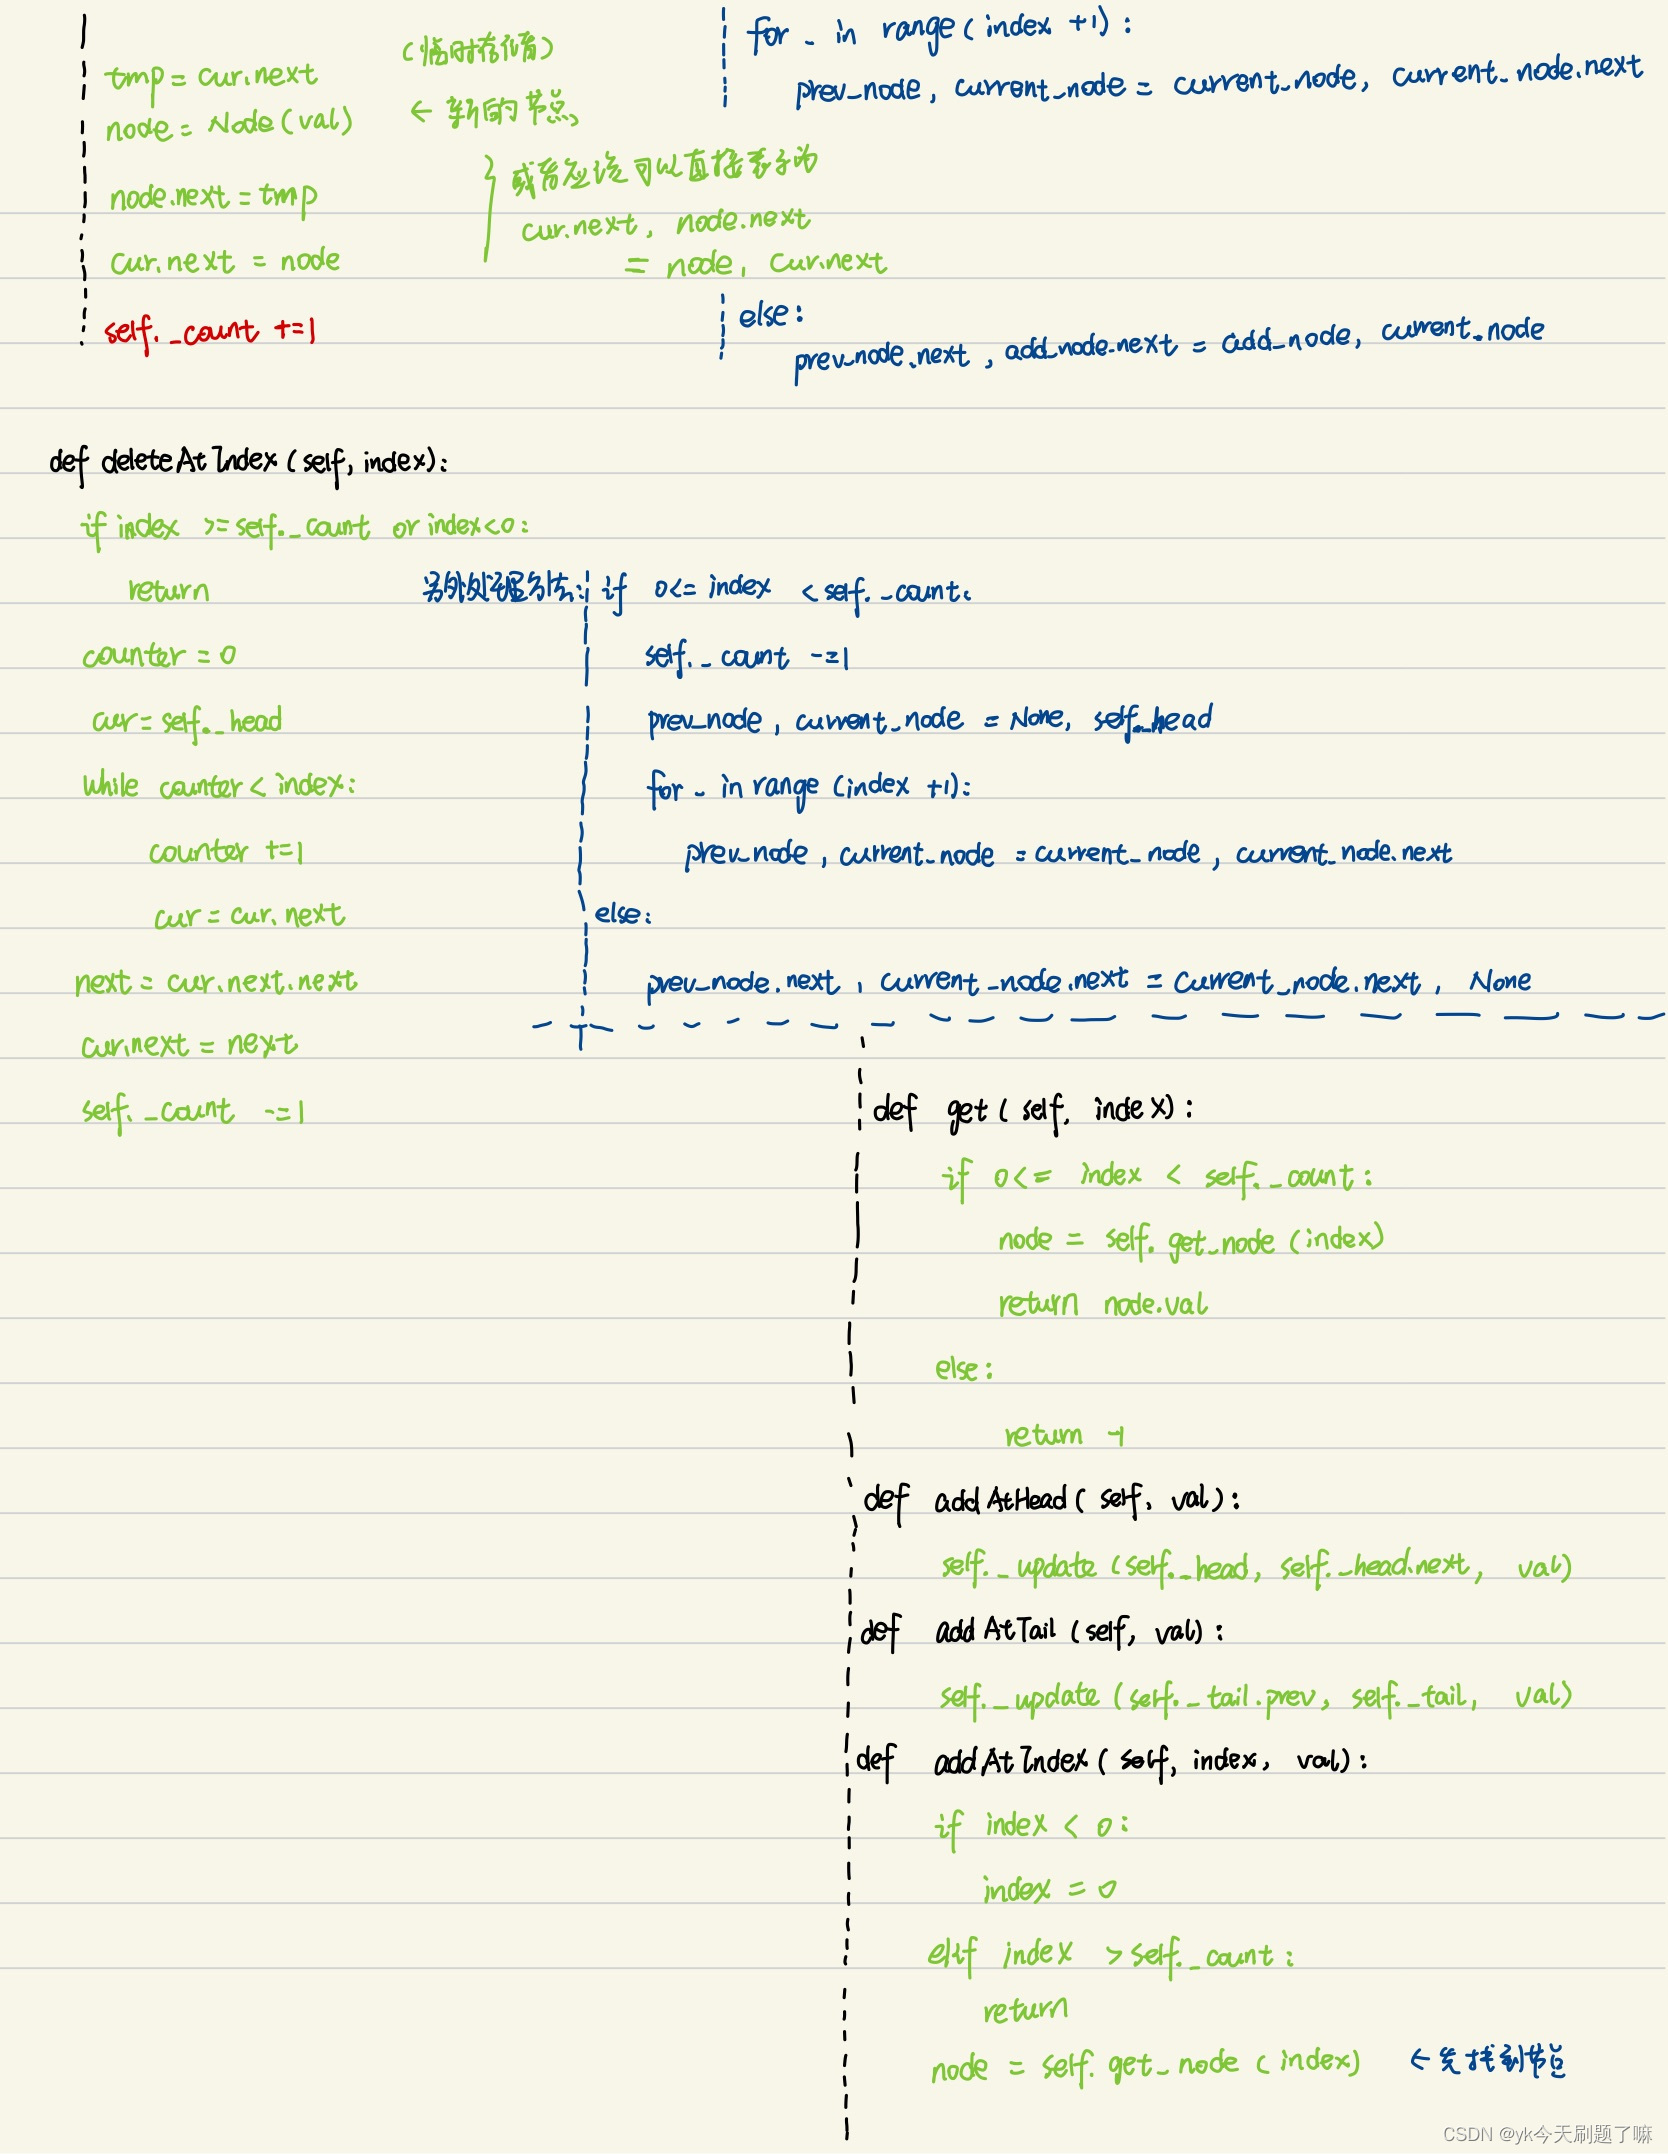 tmp = cur.next (临时存储)
node = Node(val) ← 新的节点
node.next = tmp
cur.next = node
self._count +=1
或者应该可以直接表示为
cur.next, node.next
= node, cur.next
for _ in range(index +1):
prev_node, current_node = current_node, current_node.next
else:
prev_node.next, add_node.next = add_node, current_node
def deleteAtIndex(self, index):
if index >= self._count or index<0:
return
counter = 0
cur = self._head
while counter < index:
counter +=1
cur = cur.next
next = cur.next.next
cur.next = next
self._count -=1
另外处理方法: if 0<= index < self._count:
self._count -=1
prev_node, current_node = None, self._head
for _ in range(index +1):
prev_node, current_node = current_node, current_node.next
else:
prev_node.next, current_node.next = current_node.next, None
def get(self, index):
if 0<= index < self._count:
node = self.get_node(index)
return node.val
else:
return -1
def addAtHead(self, val):
self._update(self._head, self._head.next, val)
def addAtTail(self, val):
self._update(self._tail.prev, self._tail, val)
def addAtIndex(self, index, val):
if index < 0:
index = 0
elif index > self._count:
return
node = self.get_node(index) ← 先找到节点
CSDN @yk今天刷题了嘛